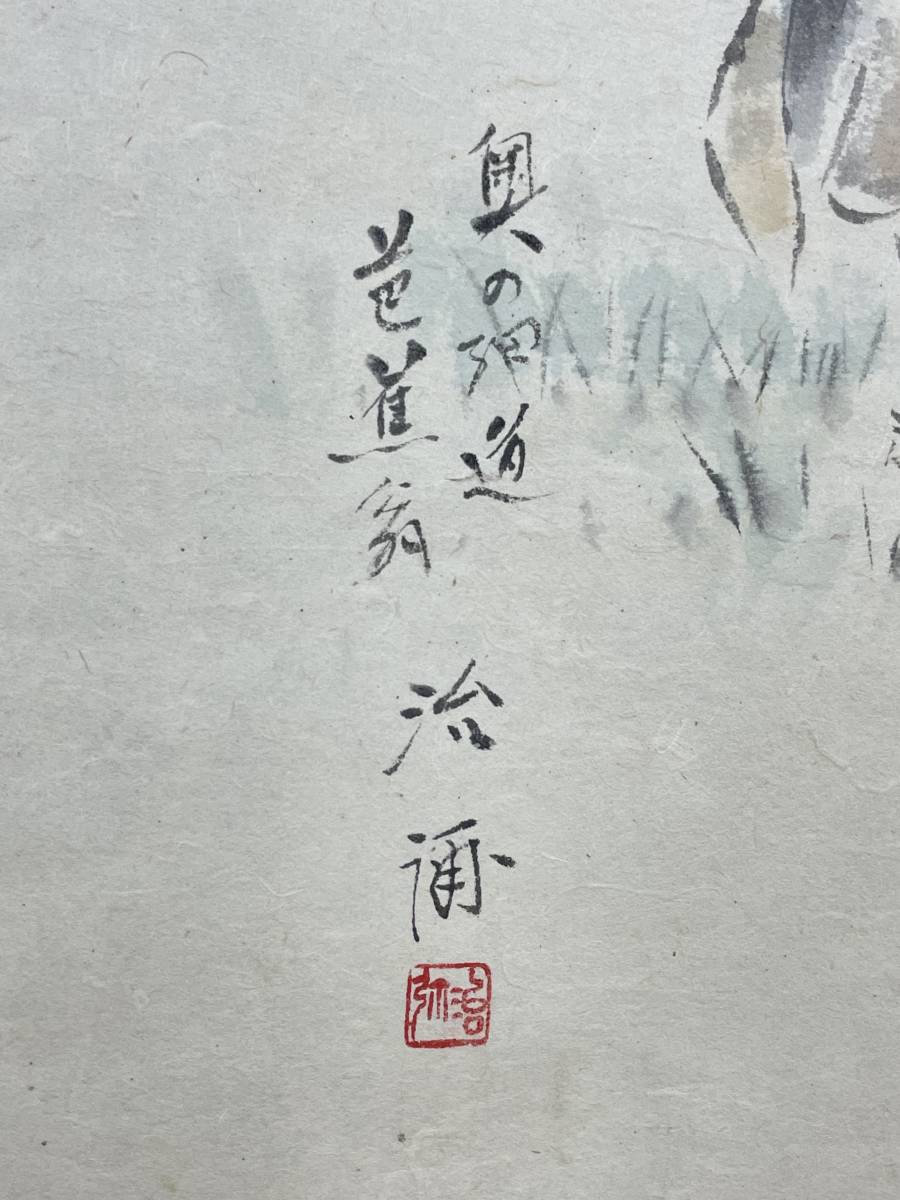 奥の細道
芭蕉翁
治彌
治弥